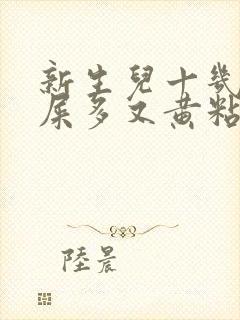 新生兒十幾
屎多又黃粘
陸晨